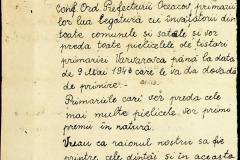 Conf. Ord. Prefecturii Oceacov, primarii
lor lua legatura cu învățătorii din
toate comunele și satele și vor
preda toate pieliceLele de țistari
primariei Varvarovca până la data
de 9 Mai 1944 care le va da dovada
de primire.
Primariile cari vor preda cele
mai multe pielicele vor primi
premii în natură.
Vreau ca raionul nostru sa fie
printre cele dintâi și în aceasta